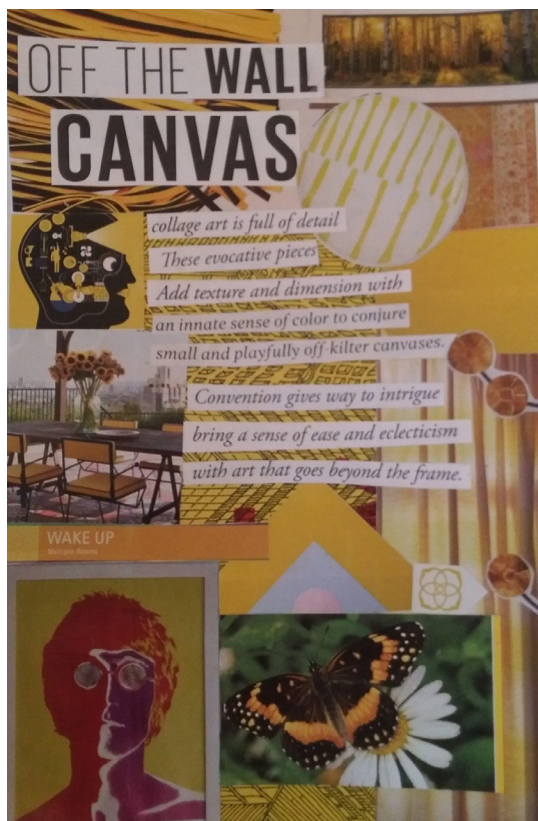 OFF THE WALL
CANVAS
collage art is full of detail
These evocative pieces
Add texture and dimension with
an innate sense of color to conjure
small and playfully off-kilter canvases.
Convention gives way to intrigue
bring a sense of ease and eclecticism
with art that goes beyond the frame.
WAKE UP
Multiple Rooms